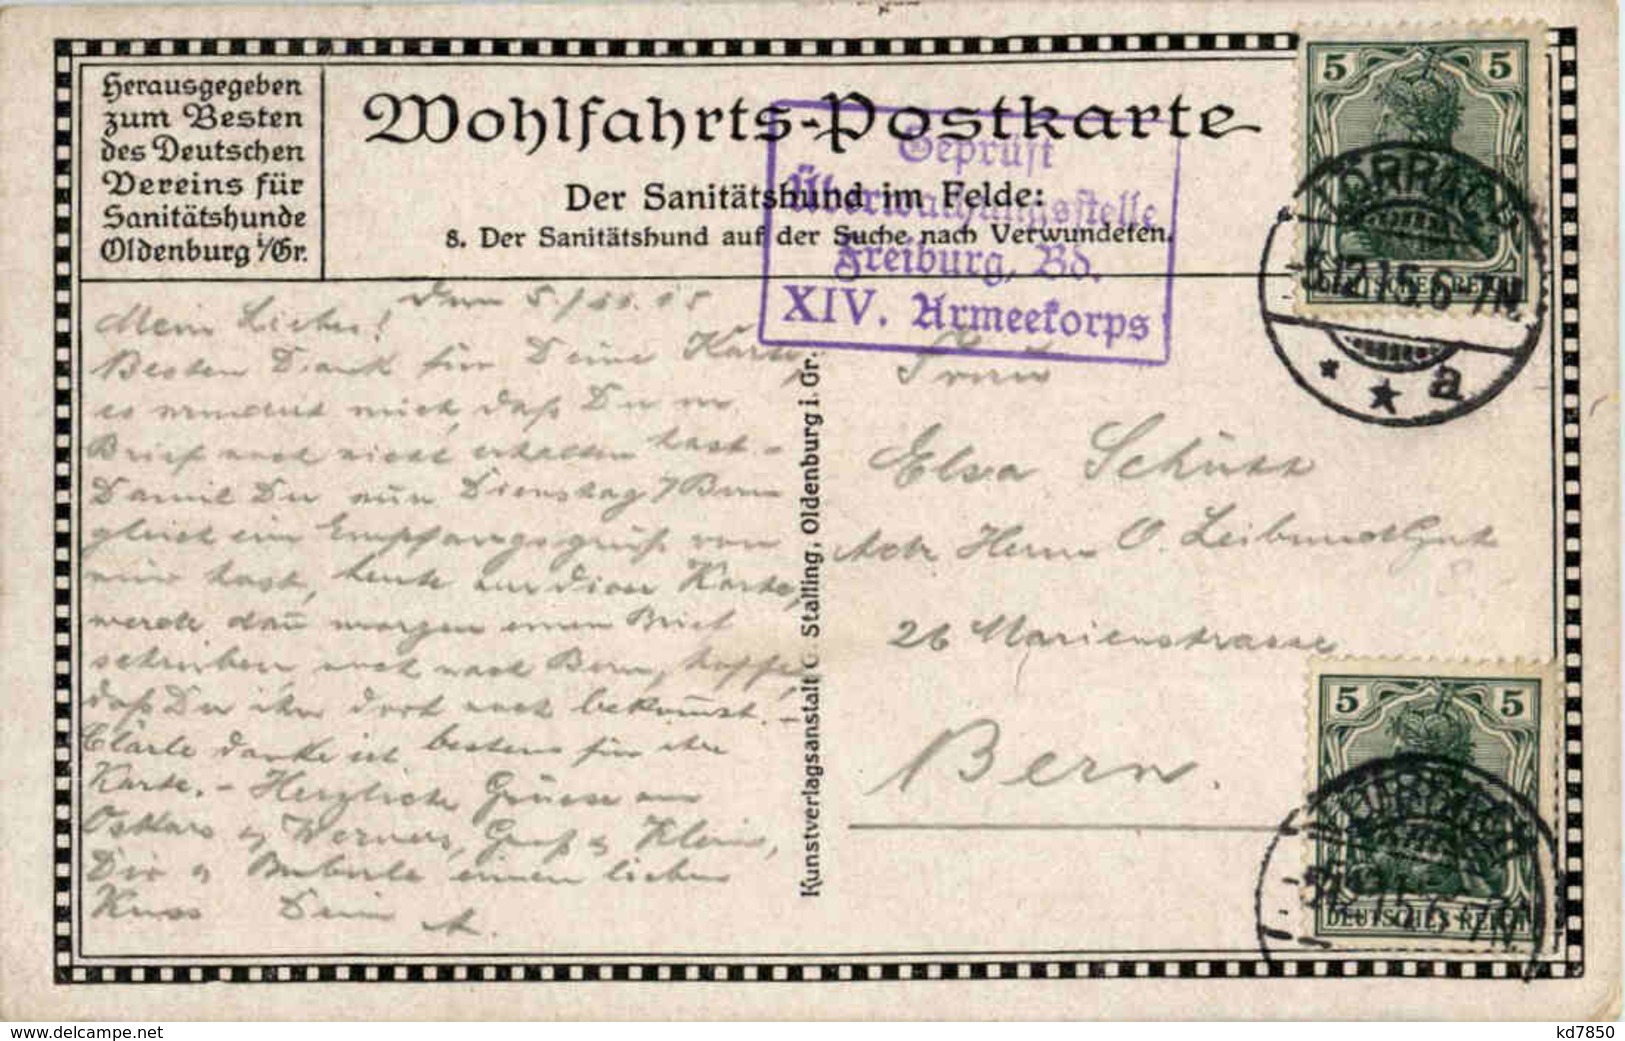 Herausgegeben
zum Besten
des Deutschen
Vereins für
Sanitätshunde
Oldenburg i/Gr.
Wohlfahrts-Postkarte
Der Sanitätshund im Felde:
8. Der Sanitätshund auf der Suche nach Verwundeten.
Geprüft
Überwachungsstelle
Freiburg, Bd.
XIV. Armeekorps
5 5
DEUTSCHES REICH
LÖRRACH
-5.12.15. 6-7N.
* * a
Den 5./
Mein Lieber!
Besten Dank für Deine Karte,
es wundert mich, daß Du m.
Brief noch nicht erhalten hast. -
Damit Du nun Dienstag / Bern
gleich ein Empfangsgruß von
mir hast, heute nur diese Karte,
werde dann morgen einen Brief
schreiben auch nach Bern, hoffe,
daß Du ihn dort noch bekommst. -
Clärle danke ich bestens für ihre
Karte. - Herzliche Grüsse an
Oskars & Werners, Groß & Klein,
Dir & Buberle einen lieben
Kuss Dein A.
Kunstverlagsanstalt G. Stalling, Oldenburg i. Gr.
Frau
Elsa Schütz
Adr. Herrn O. Leibundgut
26 Marienstrasse
Bern.
5 5
DEUTSCHES REICH
LÖRRACH
-5.12.15. 6-7N.
www.delcampe.net
kd7850